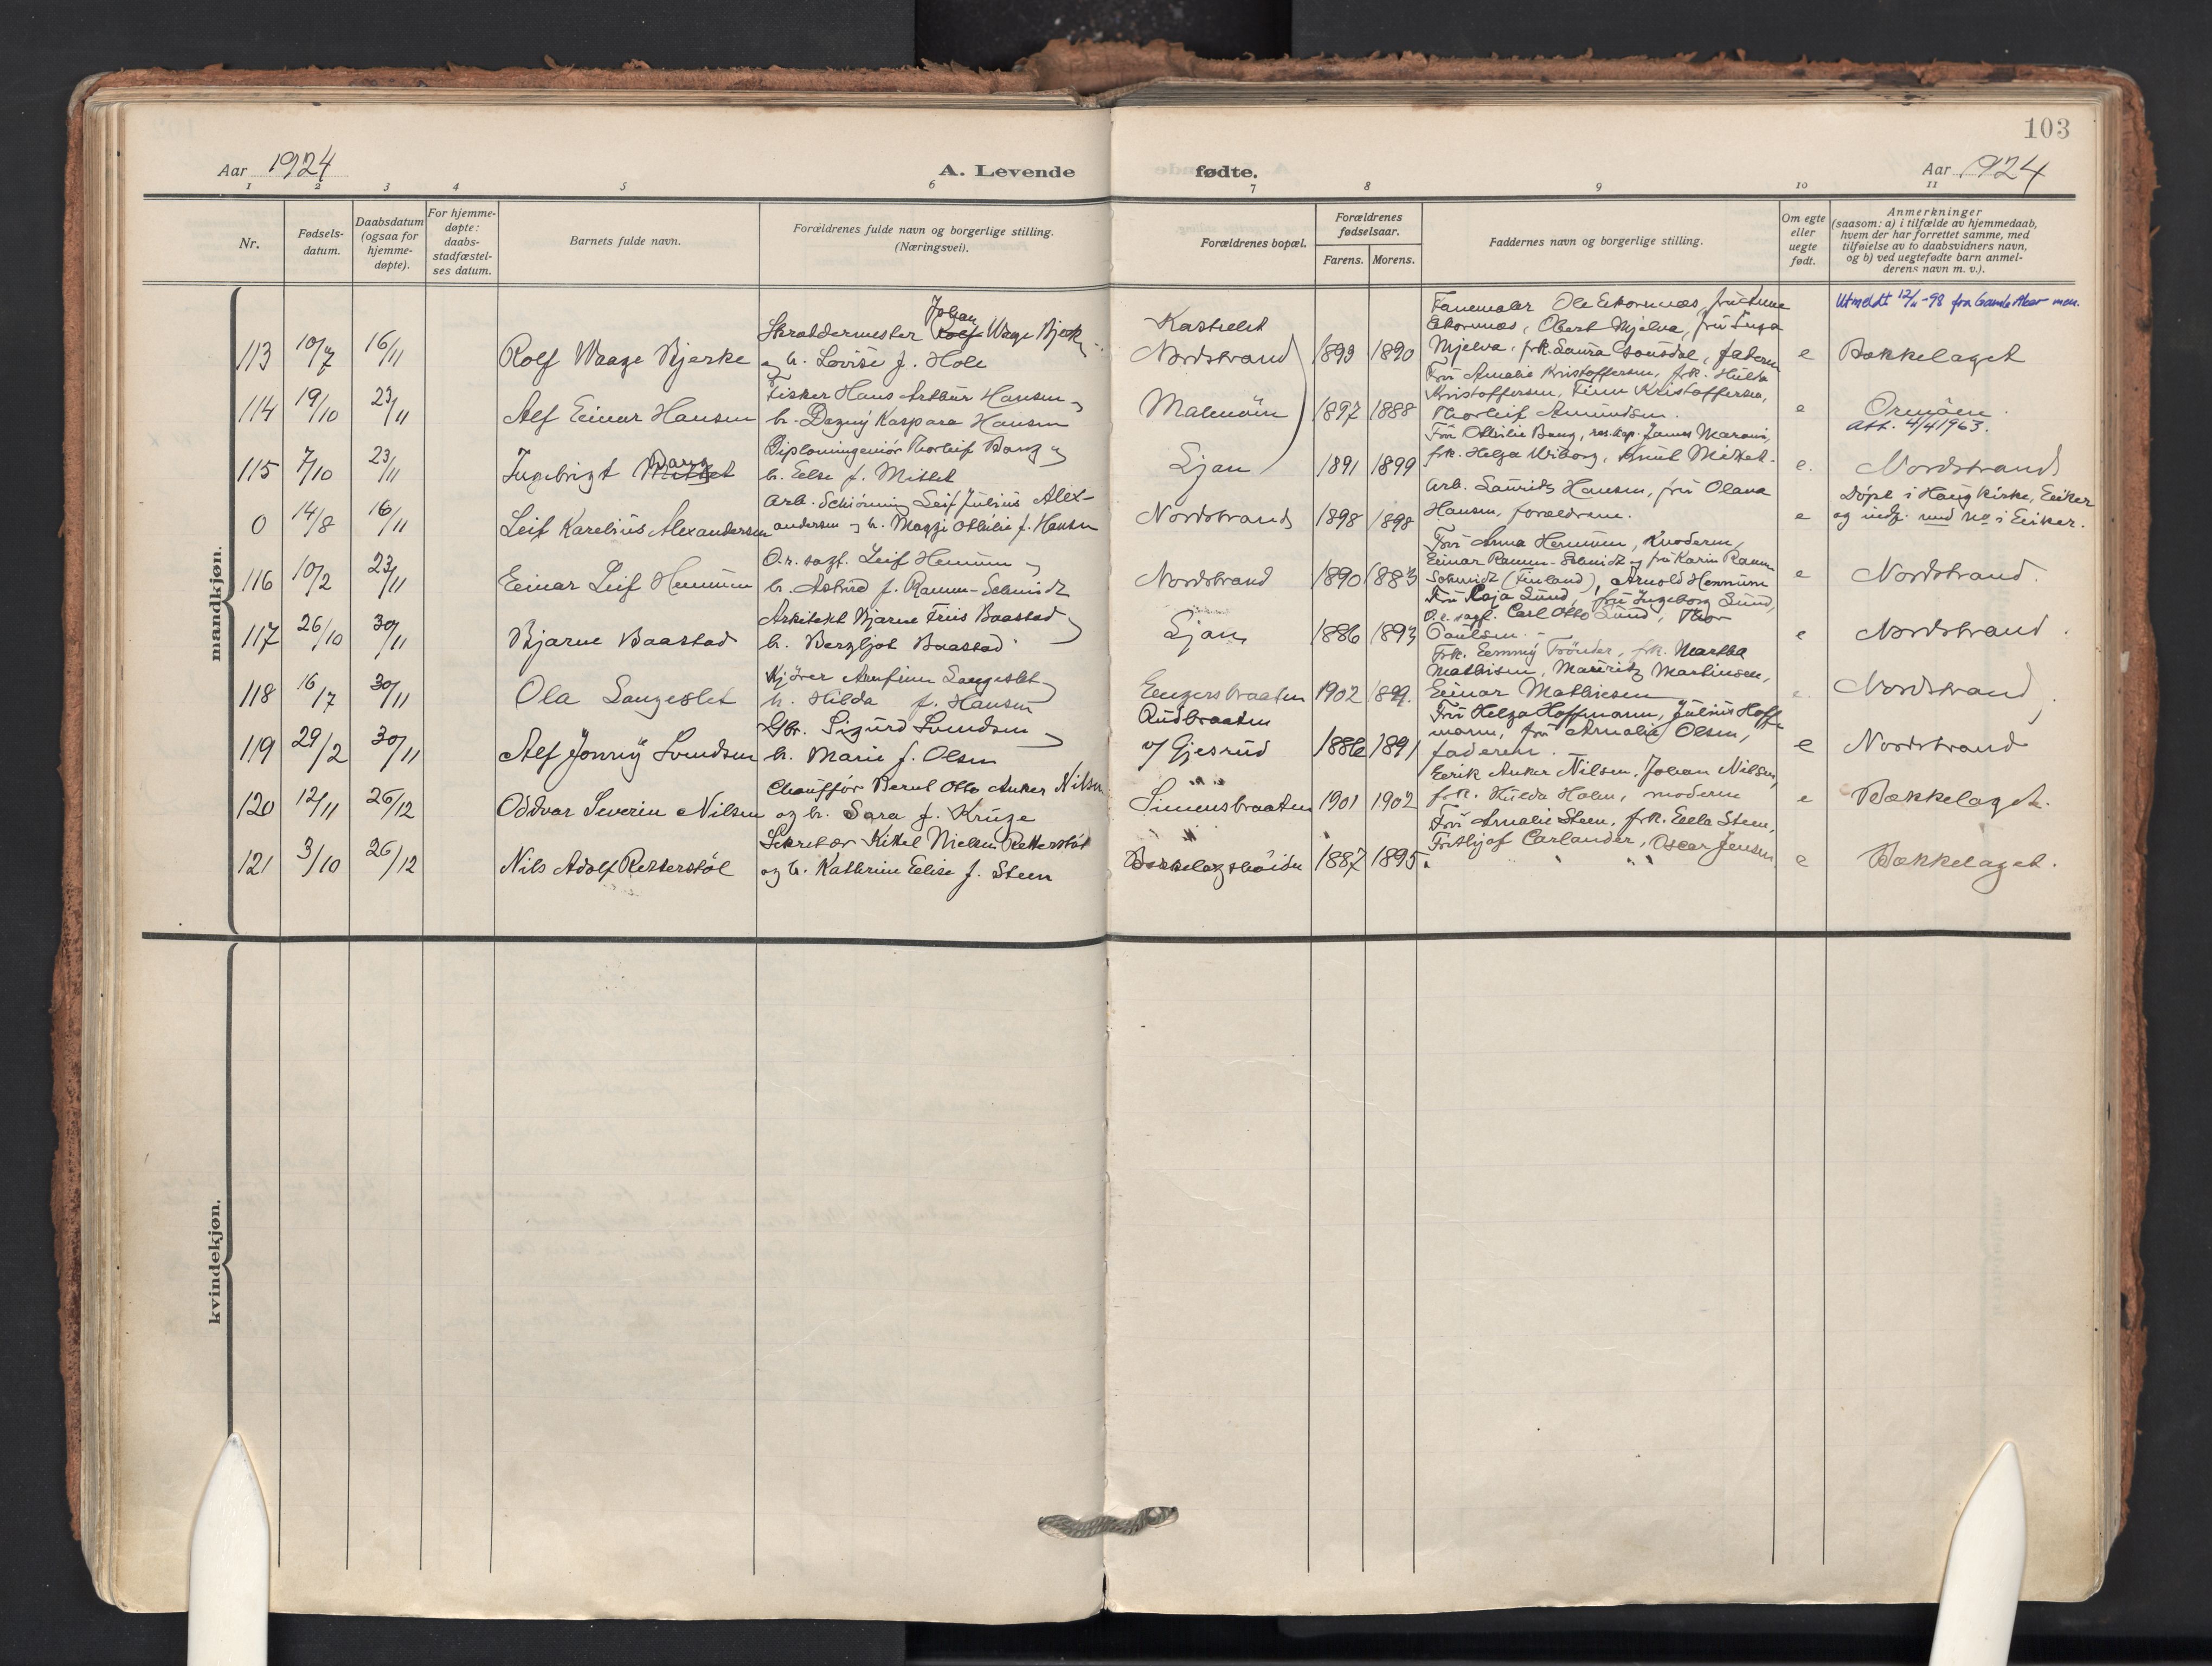 103
Aar 1924
A. Levende fødte.
Aar 1924
1 2 3 4 5 6 7 8 9 10 11
Nr.
Fødsels-
datum.
Daabsdatum
(ogsaa for
hjemme-
døpte).
For hjemme-
døpte:
daabs-
stadfæstel-
ses datum.
Barnets fulde navn.
Forældrenes fulde navn og borgerlige stilling.
(Næringsvei).
Forældrenes bopæl.
Forældrenes
fødselsaar.
Farens. Morens.
Faddernes navn og borgerlige stilling.
Om egte
eller
uegte
født.
Anmerkninger
(saasom: a) i tilfælde av hjemmedaab,
hvem der har forrettet samme, med
tilføielse av to daabsvidners navn,
og b) ved uegtefødte barn anmel-
derens navn m. v.).
mandkjøn.
113 10/7 16/11 Rolf Waage Bjerke
Skræddermester Johan Rolf Waage Bjerke
og h. Lovise f. Hole
Kastellet
Nordstrand
1899 1890
Ole Ekornnæs, fru
Ekornnæs, Obert Mjelva, fru Inga
Mjelva, frk. Laura faderen
e
Utmeldt 12/11-98 fra
Bækkelaget
114 19/10 23/11 Alf Einar Hansen
Fisker Hans Arthur Hansen og
h. Dagny Kaspara Hansen
Malmøen
1897 1888
Fru Amalie Kristoffersen, frk. Hulda
Kristoffersen, Finn Kristoffersen,
Thorleif Amundsen.
e
Ormøen.
Att. 4/4 1963.
115 7/10 23/11 Ingebrigt Mittet Bang
Diplomingeniør Thorleif Bang og
h. Else f. Mittet
Ljan
1891 1899
Fru Othilie Bang, res. kap. James Maroni,
frk. Helga Wiborg, Knut Mittet.
e.
Nordstrand
0 14/8 16/11 Leif Karelius Alexandersen
Arb. Schiønning Leif Julius Alex-
andersen og h. Maggi Othilie f. Hansen
Nordstrand
1898 1898
Arb. Laurits Hansen, fru Olava
Hansen, forældrene.
e
Døpt i Haug kirke, Eiker
og indf. und no i Eiker.
116 10/2 23/11 Einar Leif Hennum
O.r. sagf. Leif Hennum og
h. Astrid f. Ramm-Schmidt
Nordstrand
1890 1883
Fru Anna Hennum,
Einar Ramm-Schmidt og fru Karin Ramm
Schmidt (Finland), Arnold Hennum
e
Nordstrand.
117 26/10 30/11 Bjarne Baastad
Arkitekt Bjarne Friis Baastad og
h. Bergljot Baastad
Ljan
1886 1893
Fru Kaja Lund, fru Ingeborg Lund,
O.r. sagf. Carl Otto Lund, Thor
Paulsen.
e
Nordstrand.
118 16/7 30/11 Ola Langeslet
Kjører Arnfinn Langeslet og
h. Hilda f. Hansen
Engersbraaten
1902 1899.
Frk. Emmy Trønder, frk. Martha
Mathisen, Mauritz Martinsen,
Einar Mathisen
e.
Nordstrand
119 29/2 30/11 Alf Jonny Svendsen
Gbr. Sigurd Svendsen og
h. Marie f. Olsen
Rudbraaten
v/ Gjersrud
1886 1891
Fru Helga Hoffmann, Julius Hoff-
mann, fru Amalie Olsen,
faderen.
e
Nordstrand
120 12/11 26/12 Oddvar Severin Nilsen
Chauffør Bernt Otto Anker Nilsen
og h. Sara f. Kruge
Simensbraaten
1901 1902
Erik Anker Nilsen, Johan Nilsen,
frk. Hulda Holm, moderen
e
Bækkelaget.
121 3/10 26/12 Nils Adolf Retterstøl
Sekretær Kittel Nielsen Retterstøl
og h. Kathrine Elise f. Steen
Bækkelagshøiden
1887 1895
Fru Amalie Steen, frk. Ella Steen,
Frithjof Carlander, Oscar Jensen
e
Bækkelaget.
kvindekjøn.